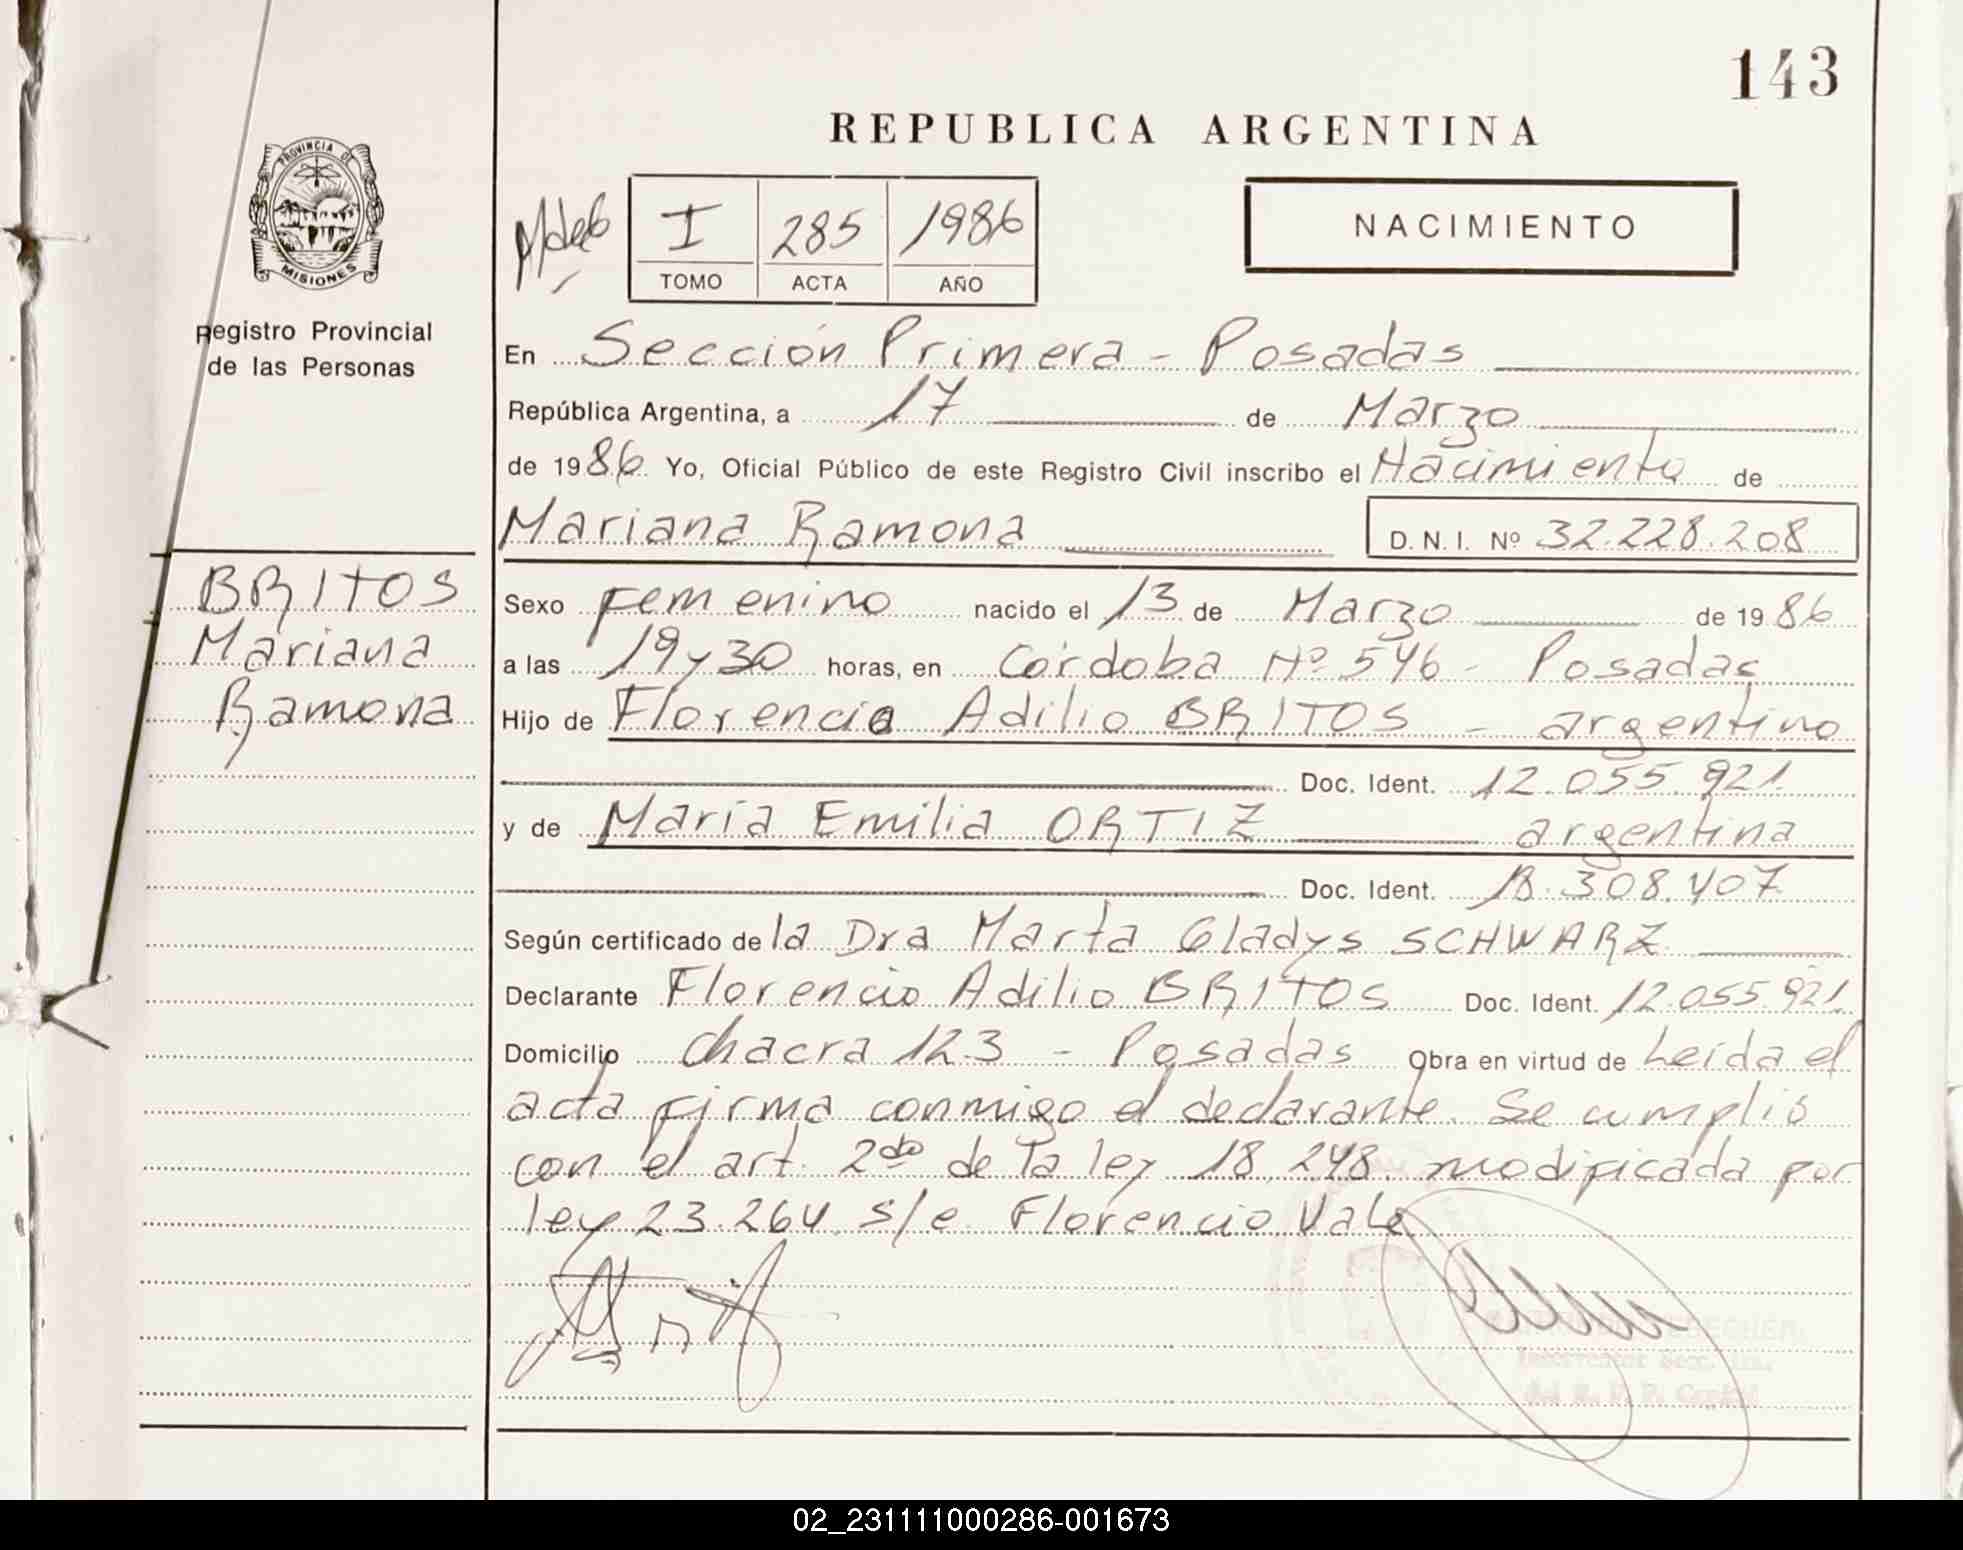 143
REPUBLICA ARGENTINA
PROVINCIA DE
MISIONES
Registro Provincial
de las Personas
I 285 1986
TOMO ACTA AÑO
NACIMIENTO
En Sección Primera - Posadas
República Argentina, a 17 de Marzo
de 1986 Yo, Oficial Público de este Registro Civil inscribo el Nacimiento de
Mariana Ramona D.N.I. Nº 32.228.208
BRITOS
Mariana
Ramona
Sexo Femenino nacido el 13 de Marzo de 1986
a las 19 y 30 horas, en Córdoba Nº 546 - Posadas
Hijo de Florencio Adilio BRITOS - argentino
Doc. Ident. 12.055.921.
y de María Emilia ORTIZ argentina
Doc. Ident. 18.308.407
Según certificado de la Dra Marta Gladys SCHWARZ
Declarante Florencio Adilio BRITOS Doc. Ident. 12.055.921.
Domicilio Chacra 123 - Posadas Obra en virtud de Leída el
acta firma conmigo el declarante. Se cumplió
con el art. 2do de la ley 18.248. modificada por
ley 23.264 s/e. Florencio Vale
02_231111000286-001673